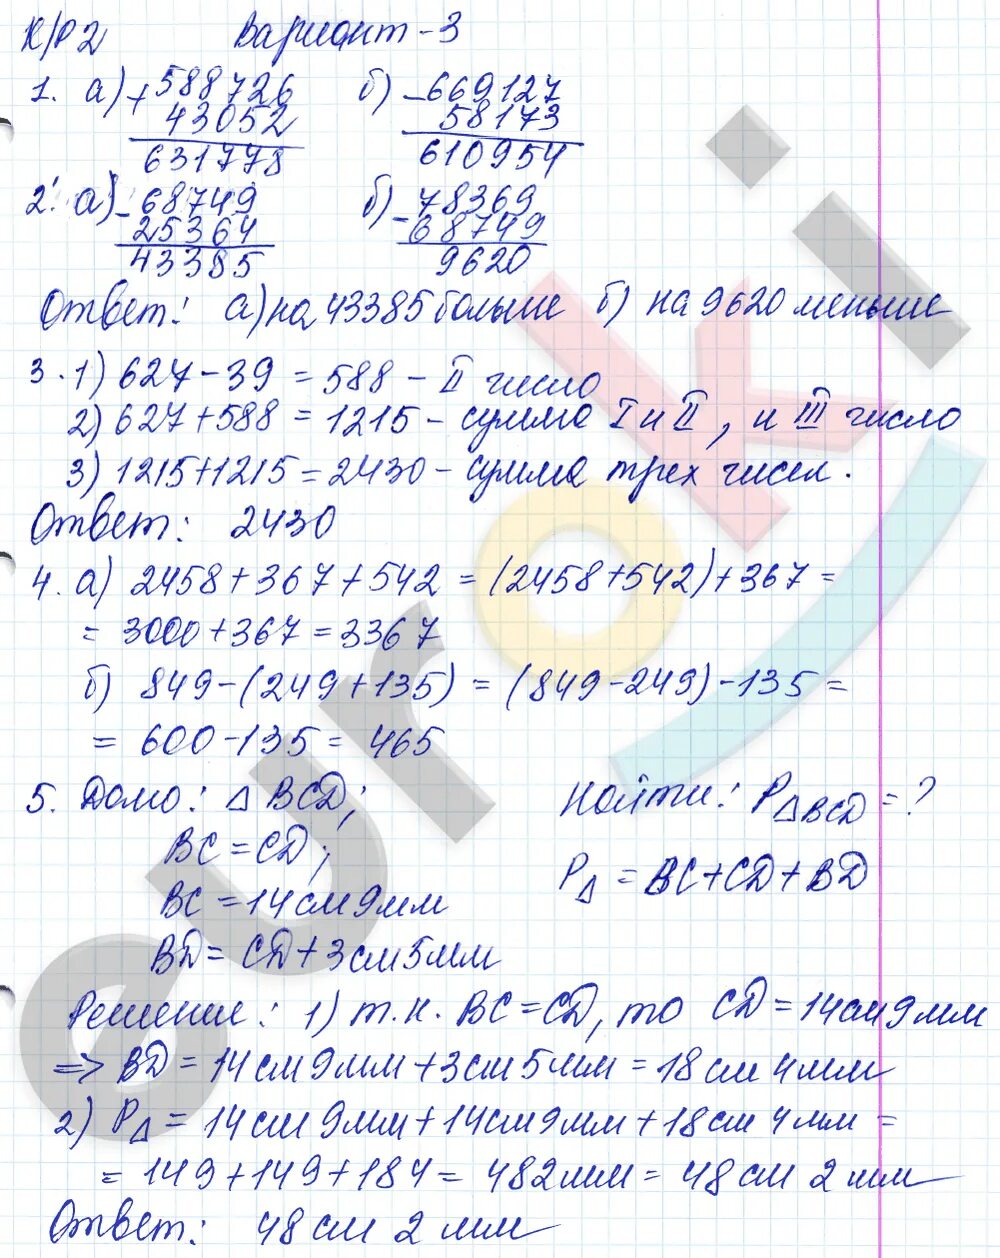 К/Р2 Вариант-3
1. а) + 588726 б) - 669127
43052 58173
631778 610954
2. а) - 68749 б) - 78369
25364 68749
43385 9620
Ответ: а) на 43385 больше б) на 9620 меньше
3. 1) 627 - 39 = 588 - II число
2) 627 + 588 = 1215 - сумма I и II, и III число
3) 1215 + 1215 = 2430 - сумма трех чисел.
Ответ: 2430
4. а) 2458 + 367 + 542 = (2458 + 542) + 367 =
= 3000 + 367 = 3367
б) 849 - (249 + 135) = (849 - 249) - 135 =
= 600 - 135 = 465
5. Дано: △ BCD; Найти: P△BCD = ?
BC = CD; P△ = BC + CD + BD
BC = 14 см 9 мм
BD = CD + 3 см 5 мм
Решение: 1) т.к. BC = CD, то CD = 14 см 9 мм
=> BD = 14 см 9 мм + 3 см 5 мм = 18 см 4 мм
2) P△ = 14 см 9 мм + 14 см 9 мм + 18 см 4 мм =
= 149 + 149 + 184 = 482 мм = 48 см 2 мм
Ответ: 48 см 2 мм
euroki